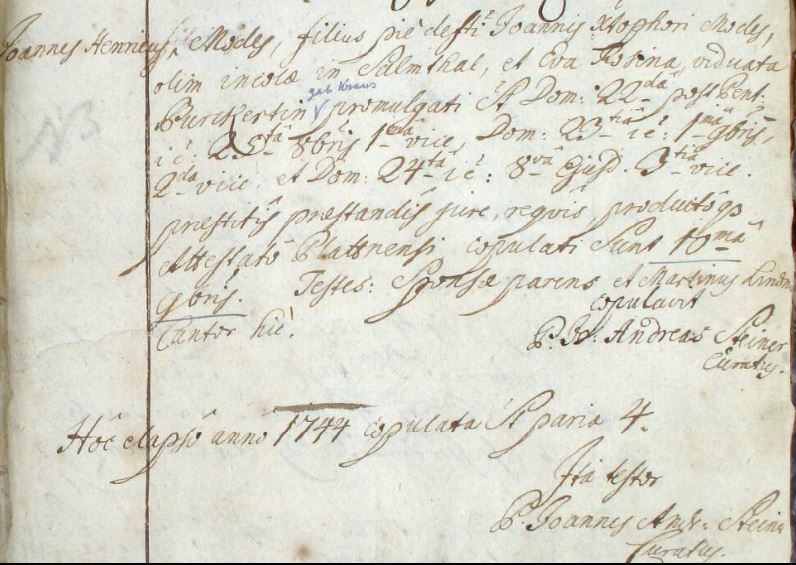 Joannes Henricus, Modes, filius piè deftî Joannis Xtophori Modes,
olim incolæ in Salmthal, et Eva Rosina viduata
geb Kraus
Burckertin promulgati st Dom: 22da post Pent:
NB
ie: 25tâ 8bris 1mâ vice, Dom: 23tiâ ie: 1mâ 9bris,
2da vice, et Dom: 24tâ ie: 8vâ Ejusd. 3tiâ vice.
præstitis præstandis jure, producto
Attestato Plattnensi copulati sunt 10mâ
9bris. Testes: Sponsæ parens et Martinus
Cantor hiè. copulavit
P. Andreas Steiner
Curatus.
Hoc elapso anno 1744 copulata st paria 4.
Ita testor
P. Joannes Andr: Steiner
Curatus.